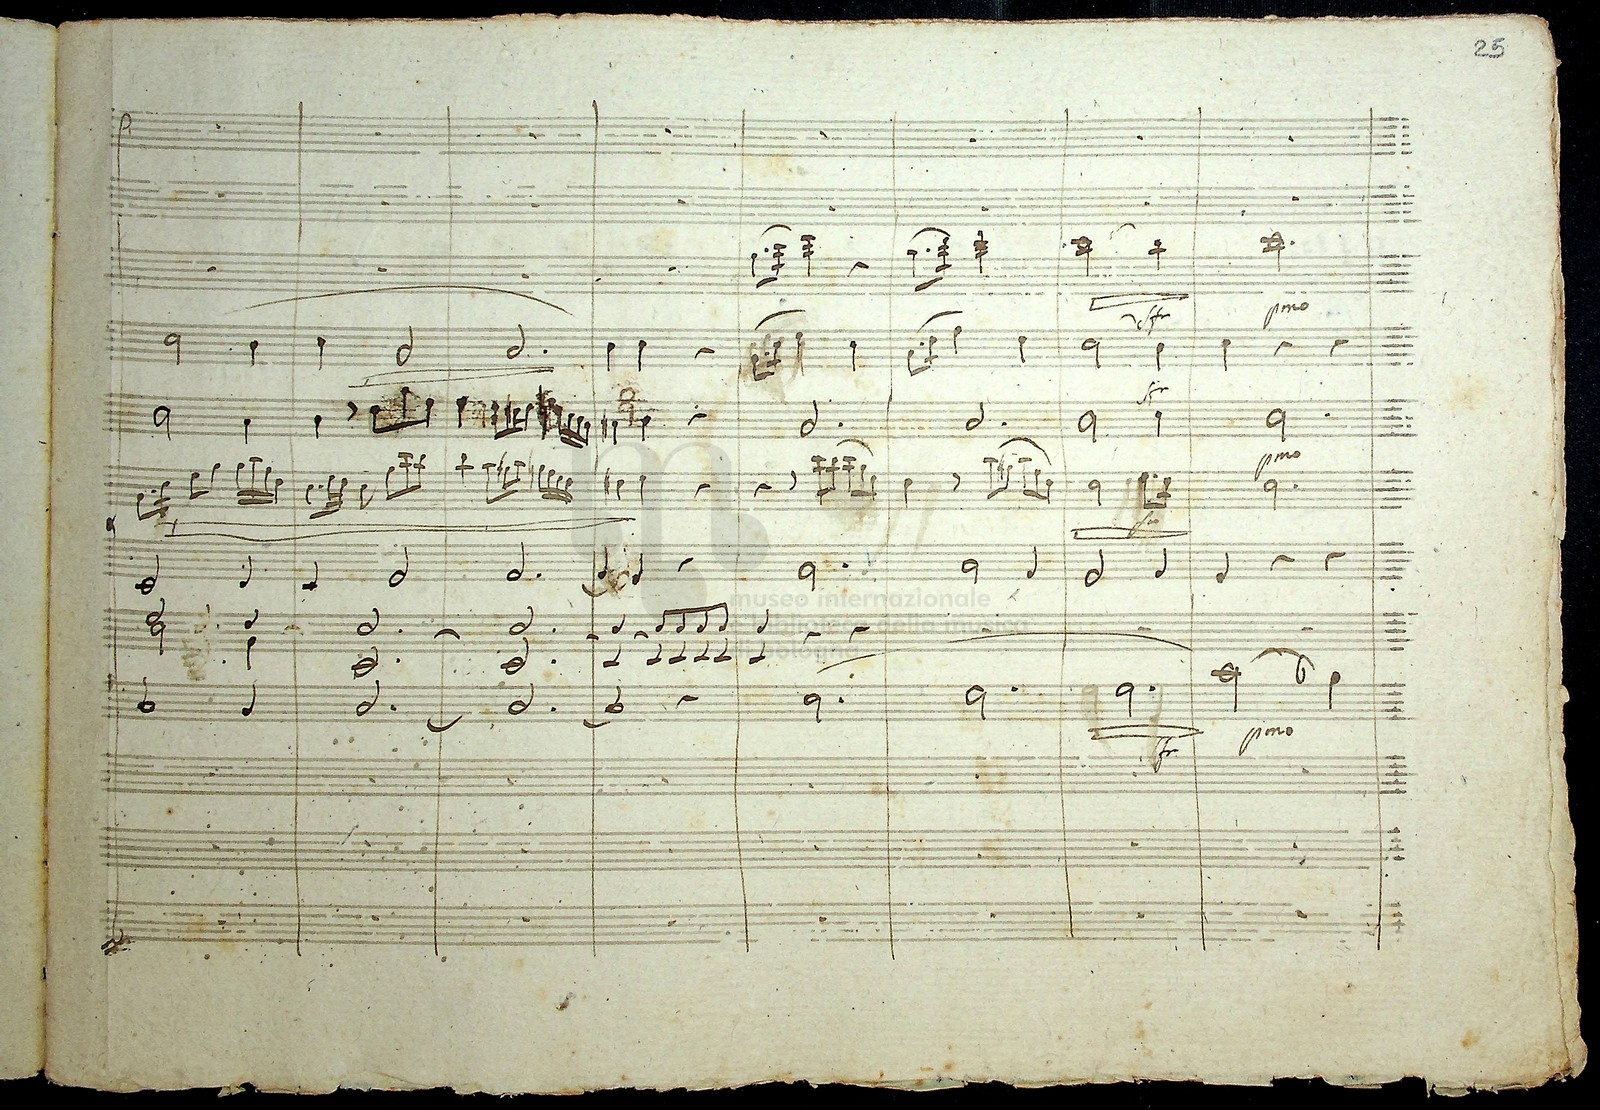 25
sfr
pmo
sfr
pmo
sfr
museo internazionale
e biblioteca della musica
di bologna
sfr
pmo